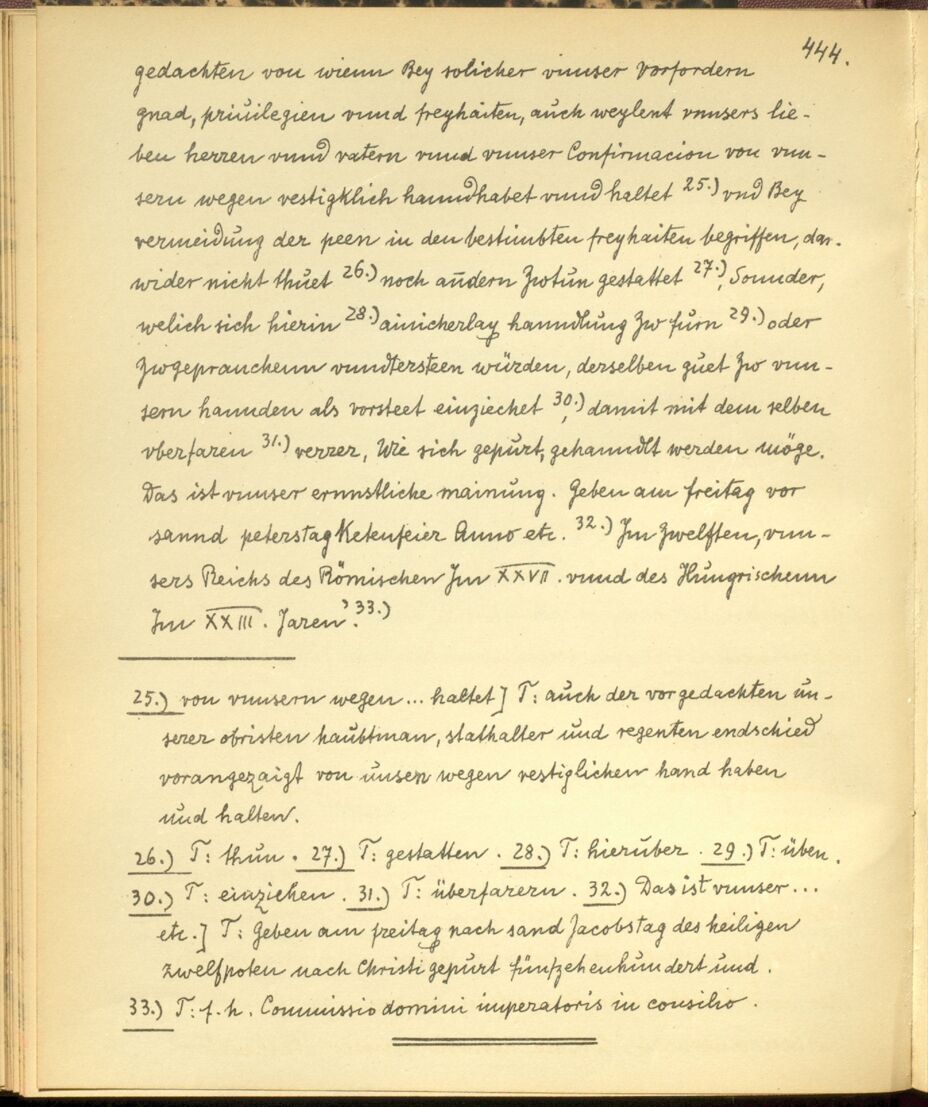 444.
gedachten von wienn Bey solicher vnnser vorfordern
gnad, priuilegien vnnd freyhaiten, auch weylent vnnsers lie-
ben herren vnnd vatern vnnd vnnser Confirmacion von vnn-
sern wegen vestigklich hanndhabet vnnd haltet 25.) vnd Bey
vermeidung der peen in den bestimbten freyhaiten begriffen, dar-
wider nicht thuet 26.) noch andern zwtun gestattet 27.), Sonnder,
welich sich hierin 28.) ainicherlay hanndlung zw fürn 29.) oder
zwgeprauchenn vnndtersteen würden, derselben guet zw vnn-
sern hannden als vorsteet einziechet 30.), damit mit dem selben
vberfaren 31.) verrer, Wie sich gepürt, gehanndlt werden möge.
Das ist vnnser ernnstliche mainung. Geben am freitag vor
sannd peterstag Ketenfeier Anno etc. 32.) Im zwelften, vnn-
sers Reichs des Römischen Im XXVII. vnnd des Hungrischenn
Im XXIII. Jaren'. 33.)
25.) von vnnsern wegen ... haltet] T: auch der vorgedachten un-
serer obristen haubtman, stathalter und regenten endschied
vorangezaigt von unsern wegen vestiglichen hand haben
und halten.
26.) T: thun. 27.) T: gestatten. 28.) T: hierüber. 29.) T: üben.
30.) T: einziehen. 31.) T: überfarern. 32.) Das ist vnnser ...
etc.] T: Geben am freitag nach sand Jacobstag des heiligen
zwelfpoten nach Christi gepurt fünfzehenhundert und.
33.) T: f. h. Commissio domini imperatoris in consilio.